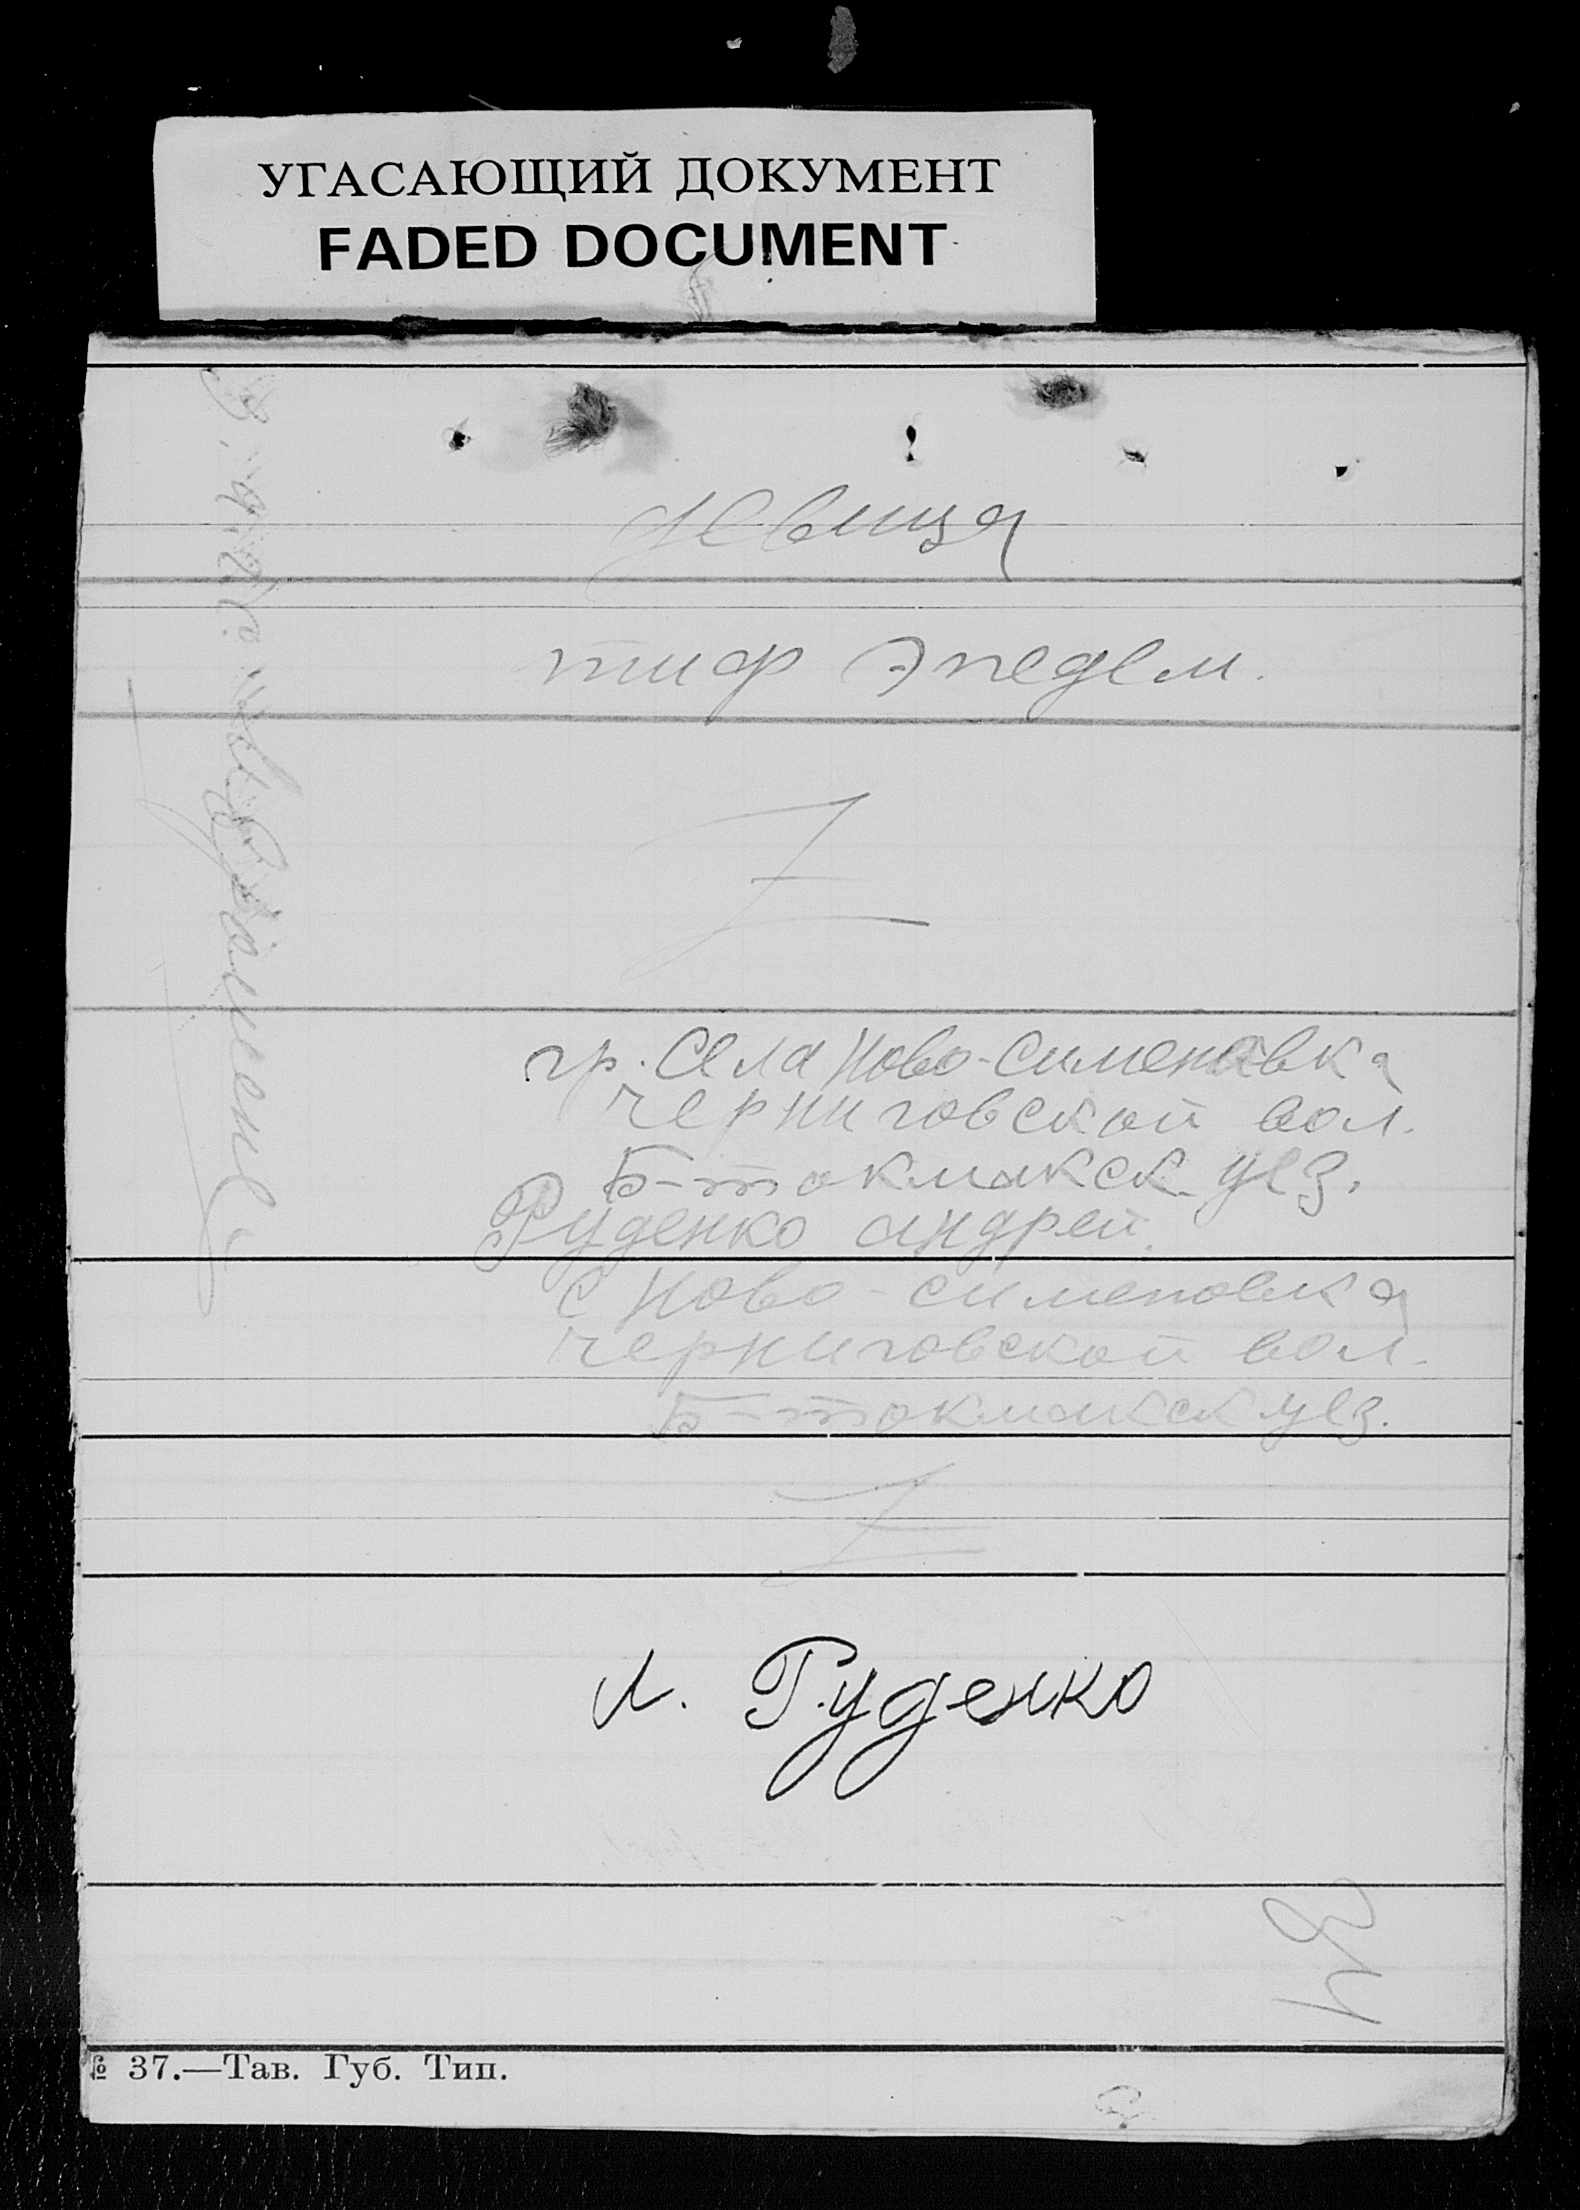 УГАСАЮЩИЙ ДОКУМЕНТ
FADED DOCUMENT
девица
тиф эпедем.
гр. Села Ново-Сименовка
Черниговской вол.
Б-токмакск уез.
Руденко андрей.
с Ново-сименовка
Черниговской вол.
Б-токмакск уез.
А. Руденко
№ 37.—Тав. Губ. Тип.